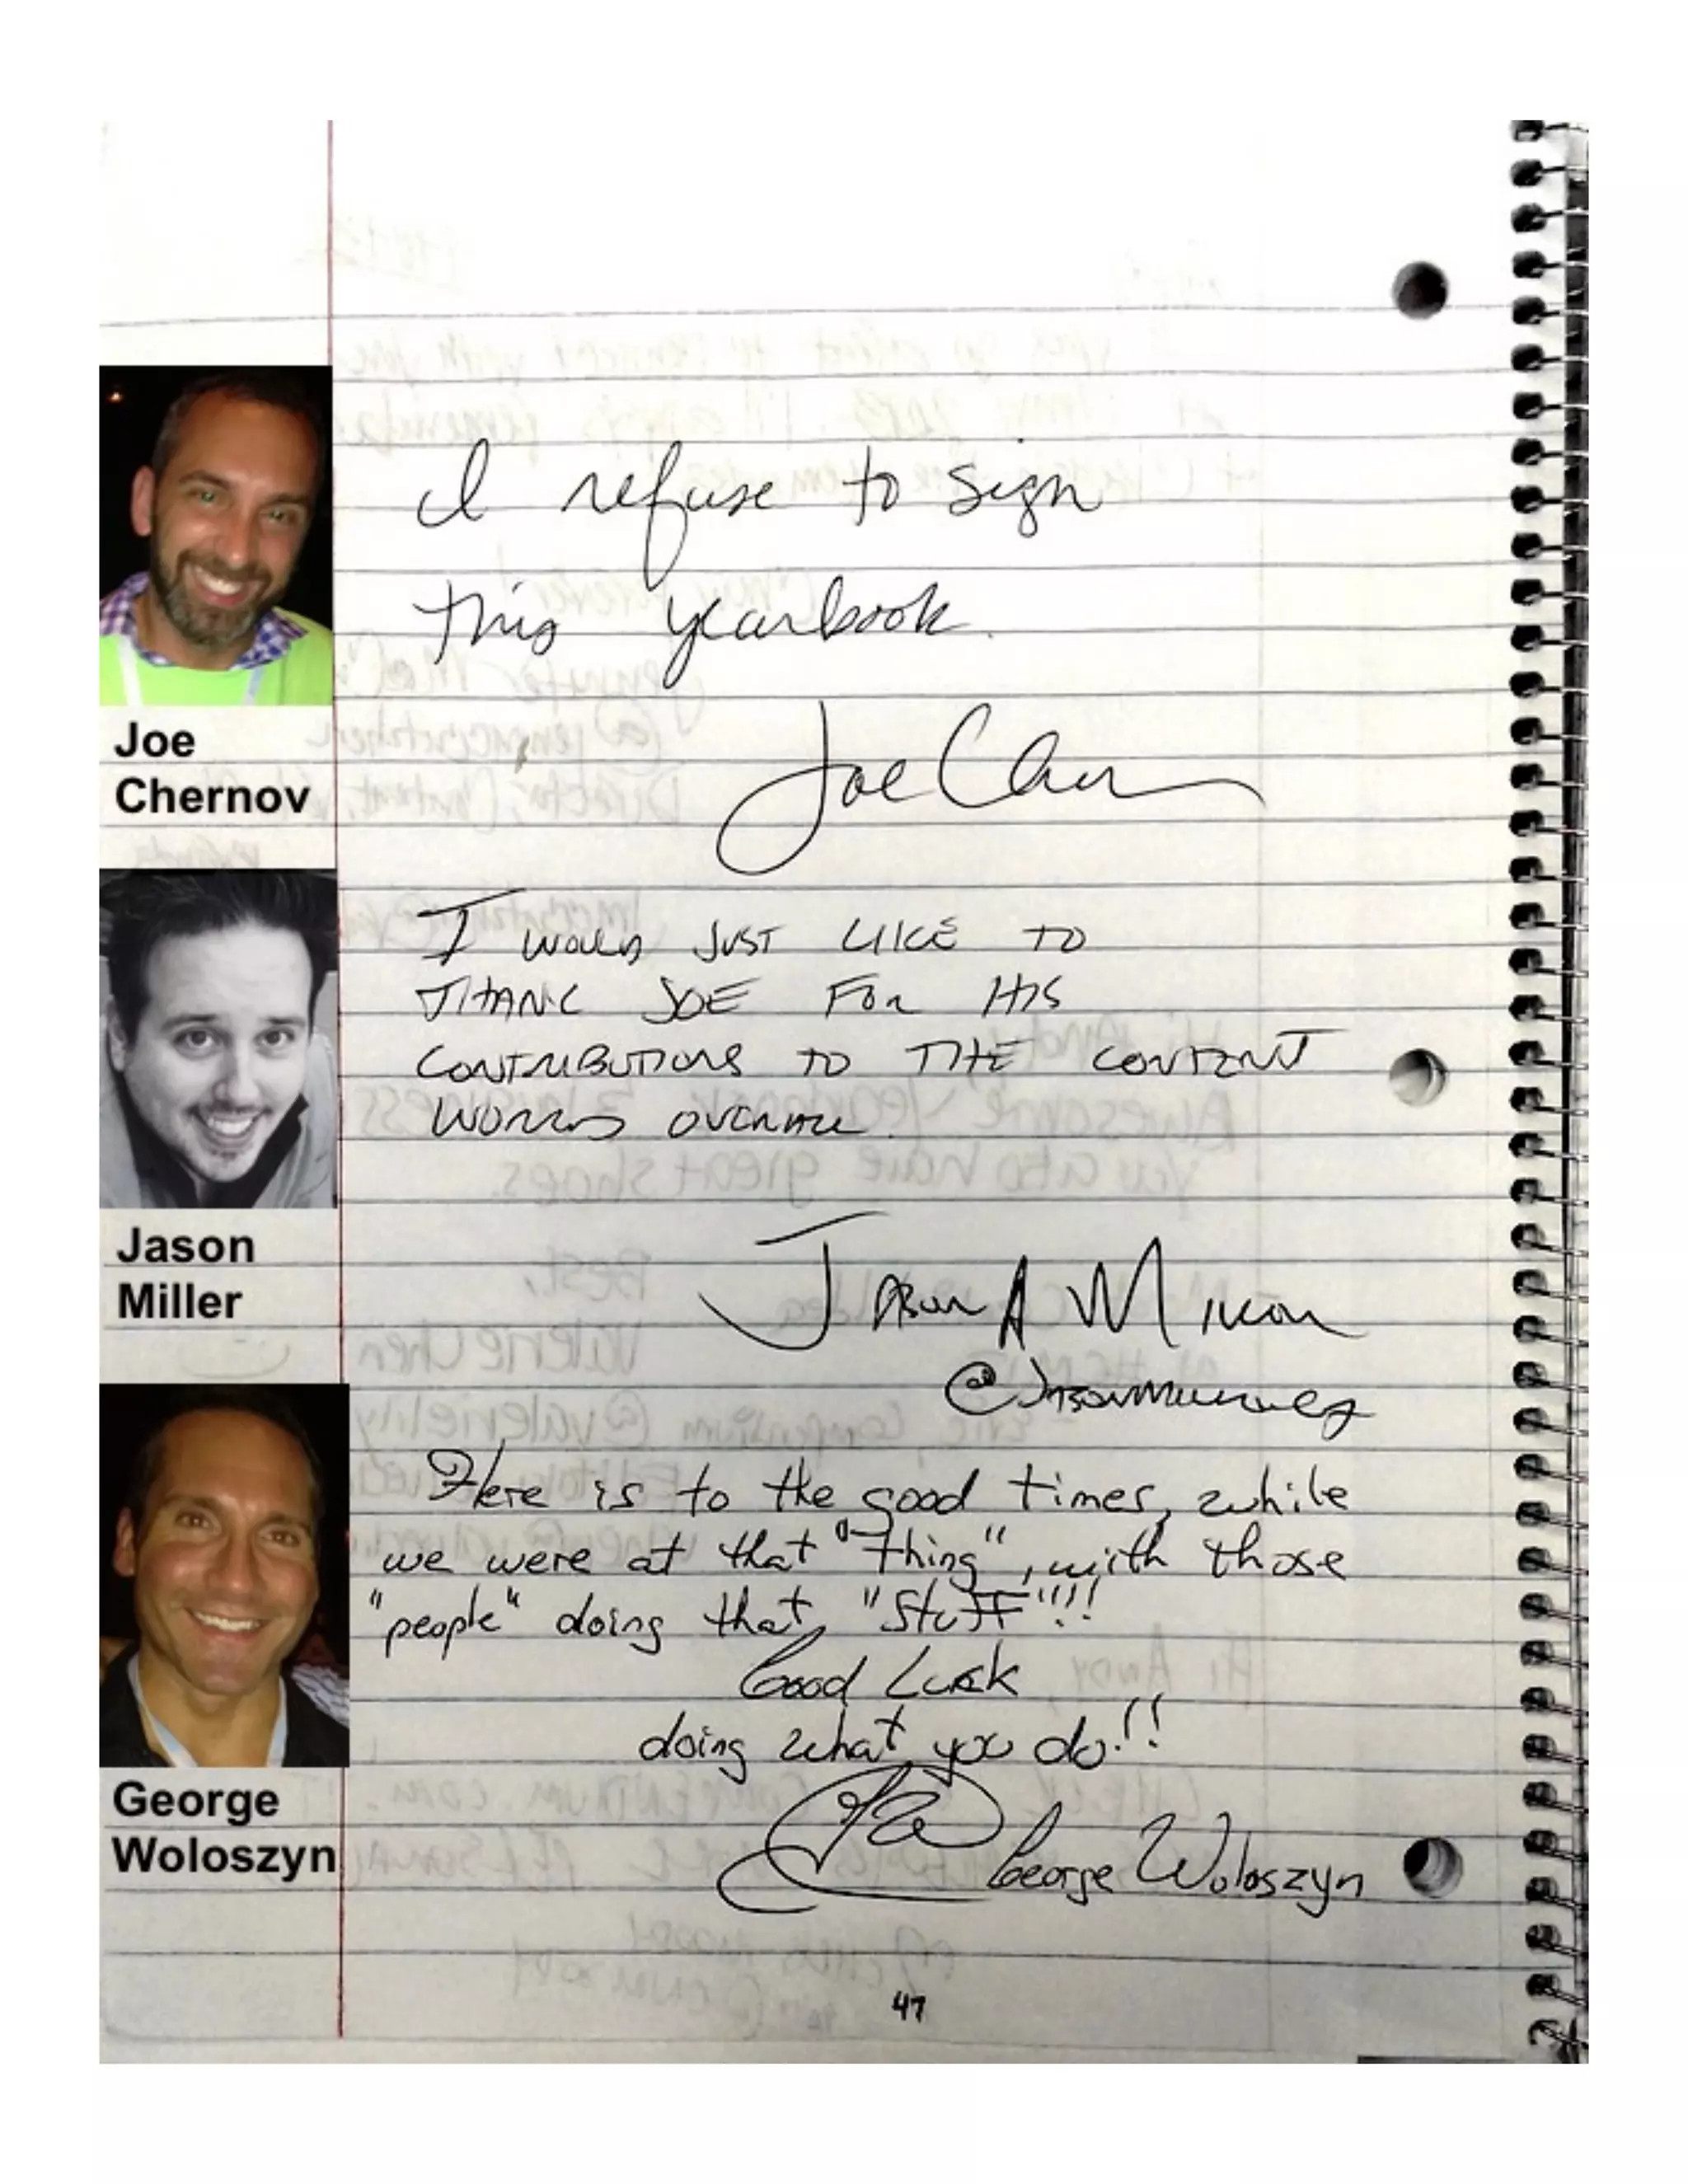 I refuse to sign
this yearbook.
Joe
Chernov
Joe Cher
I WOULD JUST LIKE TO
THANK JOE FOR HIS
CONTRIBUTIONS TO THE CONTENT
WORLD OVERALL.
Jason
Miller
JASON A MILLER
Here is to the good times, while
we were at that "thing", with those
"people" doing that "Stuff"!!!
Good Luck
doing what you do!!
George
Woloszyn
George Woloszyn
47